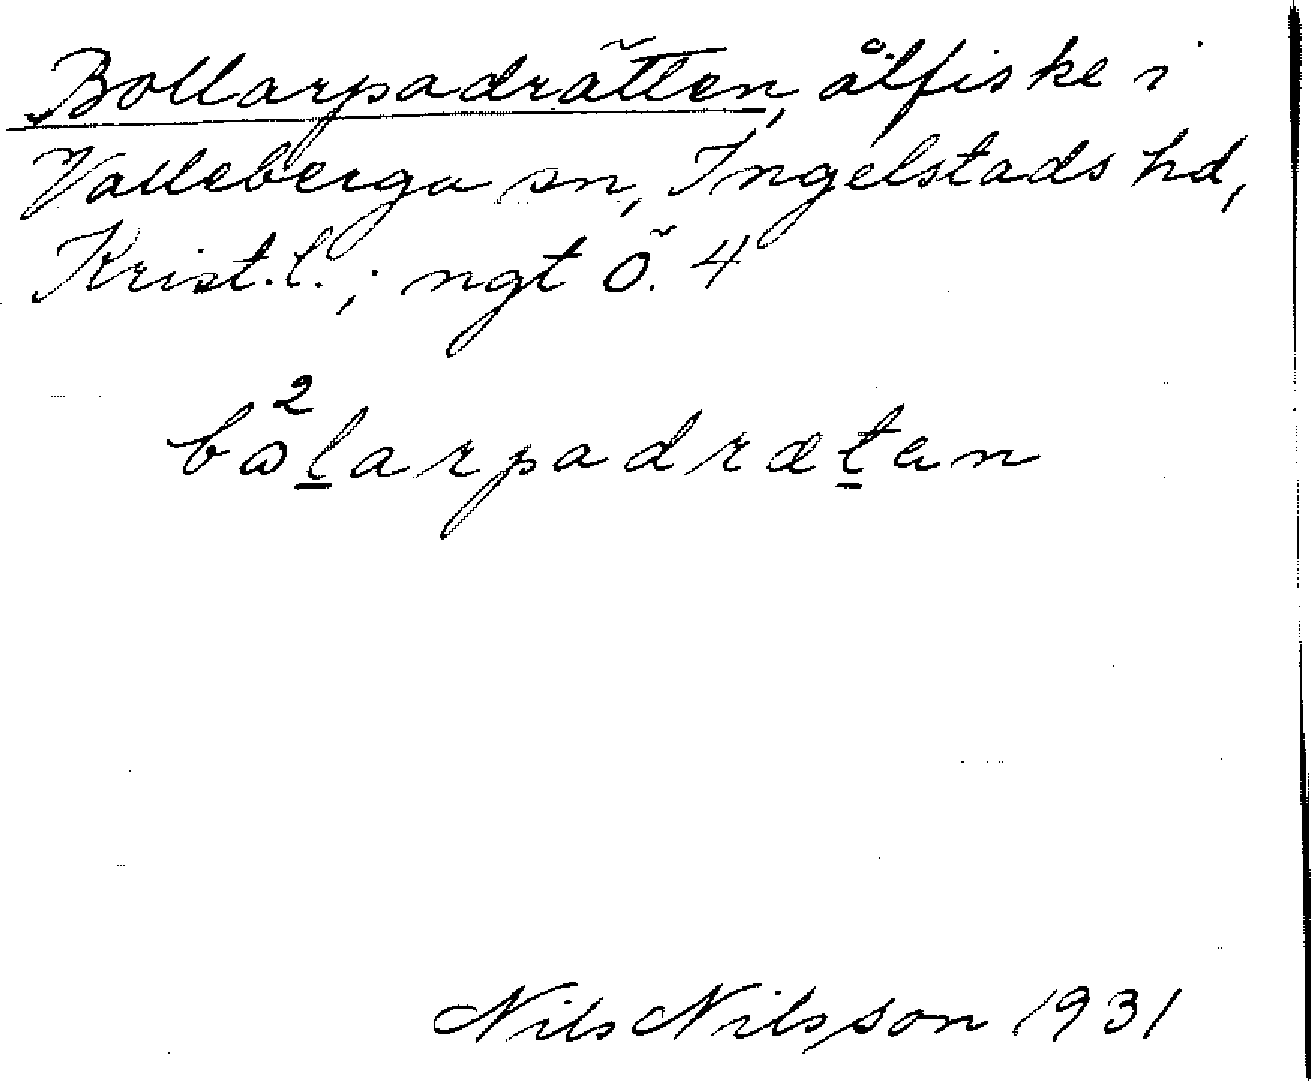 Bollarpadrätten, ålfiske i
Valleberga sn, Ingelstads hd,
Krist.l.; ngt Ö. 4
bɷ²l̲arpadræt̲an
Nils Nilsson 1931